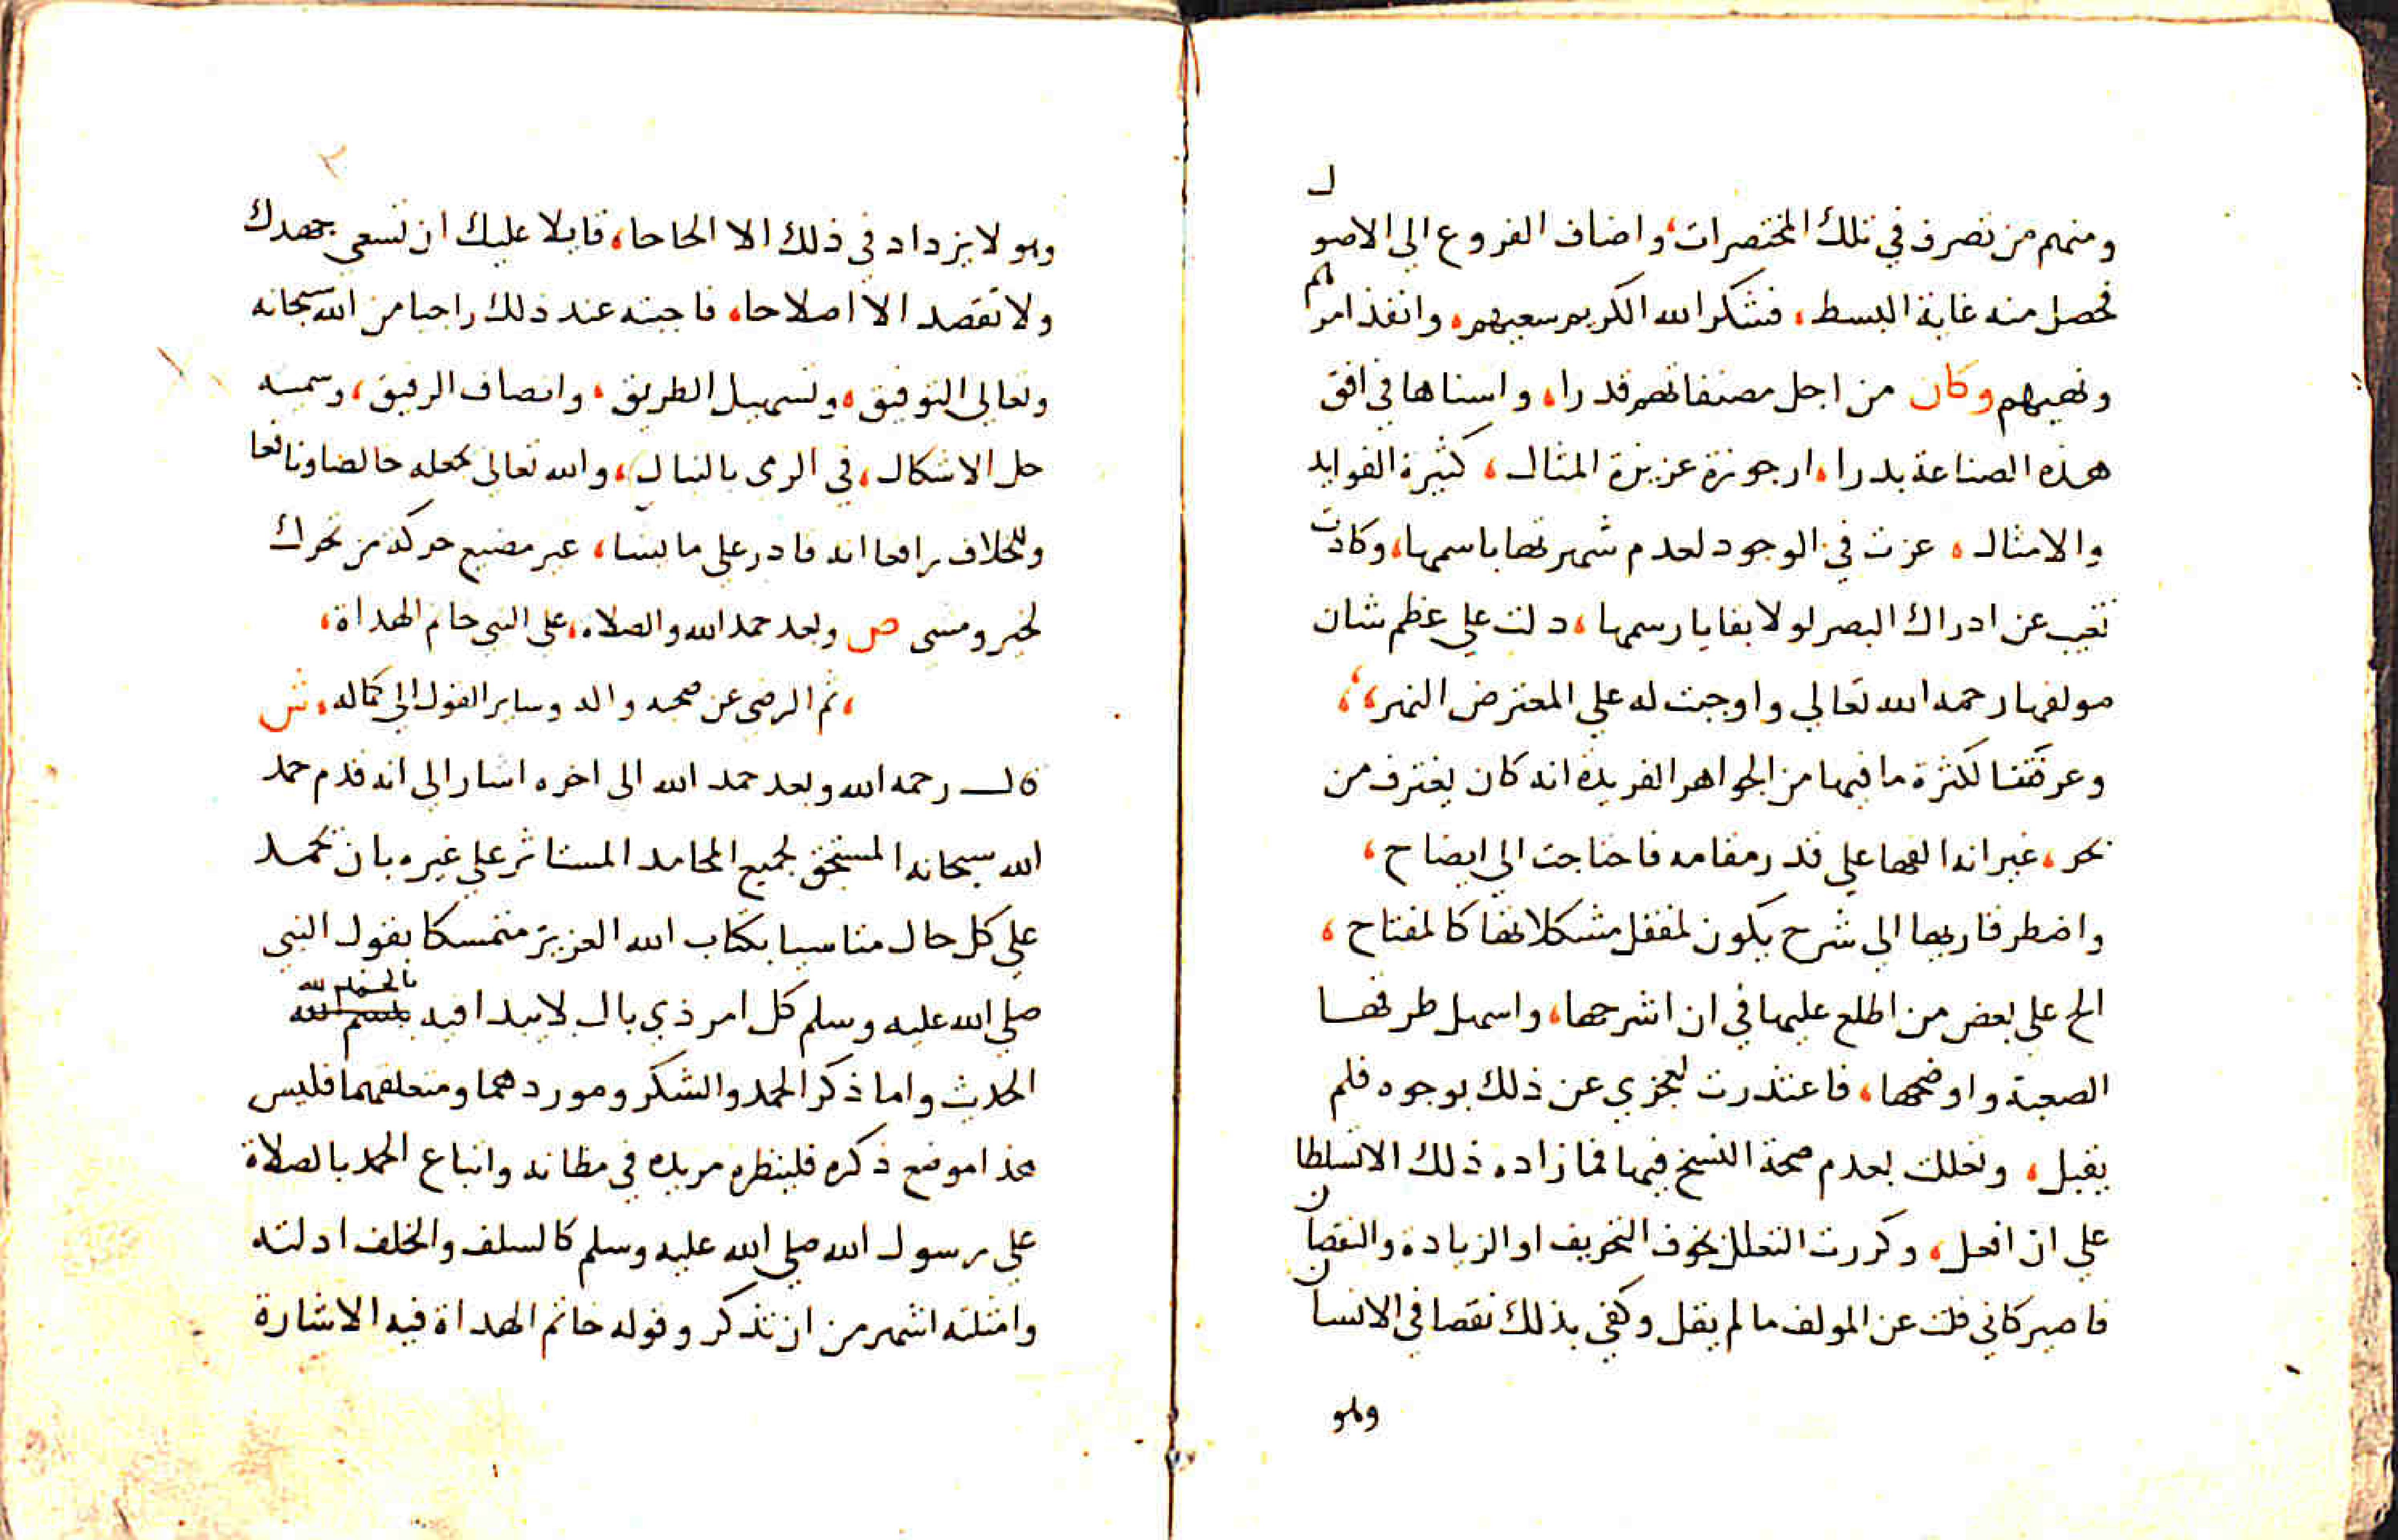 ومنهم من تصرف في تلك المختصرات، واضاف الفروع الى الاصول
فحصل منه غاية البسط، فشكر الله الكريم سعيهم، وانفذ امرهم
ونهيهم وكان من اجل مصنفاتهم قدرا، واسناها في افق
هذه الصناعة بدرا، ارجوزة عزيزة المثال، كثيرة الفوايد
والامثال، عزت في الوجود لعدم شهرتها باسمها، وكادت
تغيب عن ادراك البصر لولا بقايا رسمها، دلت علي عظم شان
مولفها رحمه الله تعالي واوجبت له علي المعترض النهر،،
وعرفتنا لكثرة ما فيها من الجواهر الفريدة انه كان يغترف من
بحر، غير انه الفها علي قدر مقامه فاحتاجت الي ايضاح،
واضطر قاريها الى شرح يكون لمقفل مشكلاتها كالمفتاح،
الح علي بعض من اطلع عليها في ان اشرحها، واسهل طرقها
الصعبة واوضحها، فاعتذرت لعجزي عن ذلك بوجوه فلم
يقبل، وتعللت بعدم صحة النسخ فيها فما زاده ذلك الا تسلطا
علي ان افعل، وكررت التعلل بخوف التحريف او الزيادة والنقصان
فاصير كاني قلت عن المولف ما لم يقل وكفي بذلك نقصا في الانسان
وهو
وهو لا يزداد في ذلك الا الحاحا، قايلا عليك ان تسعي جهدك
ولا تقصد الا اصلاحا، فاجبته عند ذلك راجيا من الله سبحانه
وتعالي التوفيق، وتسهيل الطريق، وانصاف الرفيق، وسميته
حل الاشكال، في الرمى بالنبال، والله تعالى يجعله خالصا ونافعا
وللخلاف رافعا انه قادر على ما يشا، غير مضيع حركة من تحرك
لخير ومشى ص وبعد حمد الله والصلاه، على النبي خاتم الهداة،
،ثم الرضي عن صحبه واله وساير القول الي كماله، ش
قال رحمه الله وبعد حمد الله الى اخره اشار الى انه قدم حمد
الله سبحانه المستحق لجميع المحامد المستاثر علي غيره بان يحمد
علي كل حال متاسيا بكتاب الله العزيز متمسكا بقول النبي
صلي الله عليه وسلم كل امر ذي بال لا يبدا فيه بالحمد لله
الحديث واما ذكر الحمد والشكر وموردهما ومتعلقهما فليس
هذا موضع ذكره فلينظره مريده في مظانه واتباع الحمد بالصلاة
علي رسول الله صلي الله عليه وسلم كالسلف والخلف ادلته
وامثلته اشهر من ان تذكر وقوله خاتم الهداة فيه الاشارة